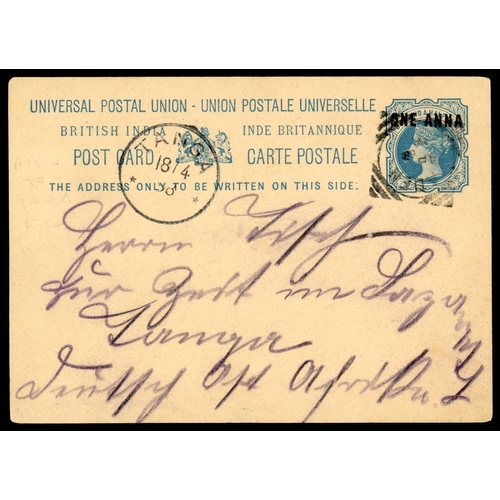 UNIVERSAL POSTAL UNION - UNION POSTALE UNIVERSELLE
BRITISH INDIA INDE BRITANNIQUE
POST CARD CARTE POSTALE
THE ADDRESS ONLY TO BE WRITTEN ON THIS SIDE.
ONE ANNA
TANGA
18/4
Herrn
zur Zeit im
Tanga
Deutsch Ost Afrika